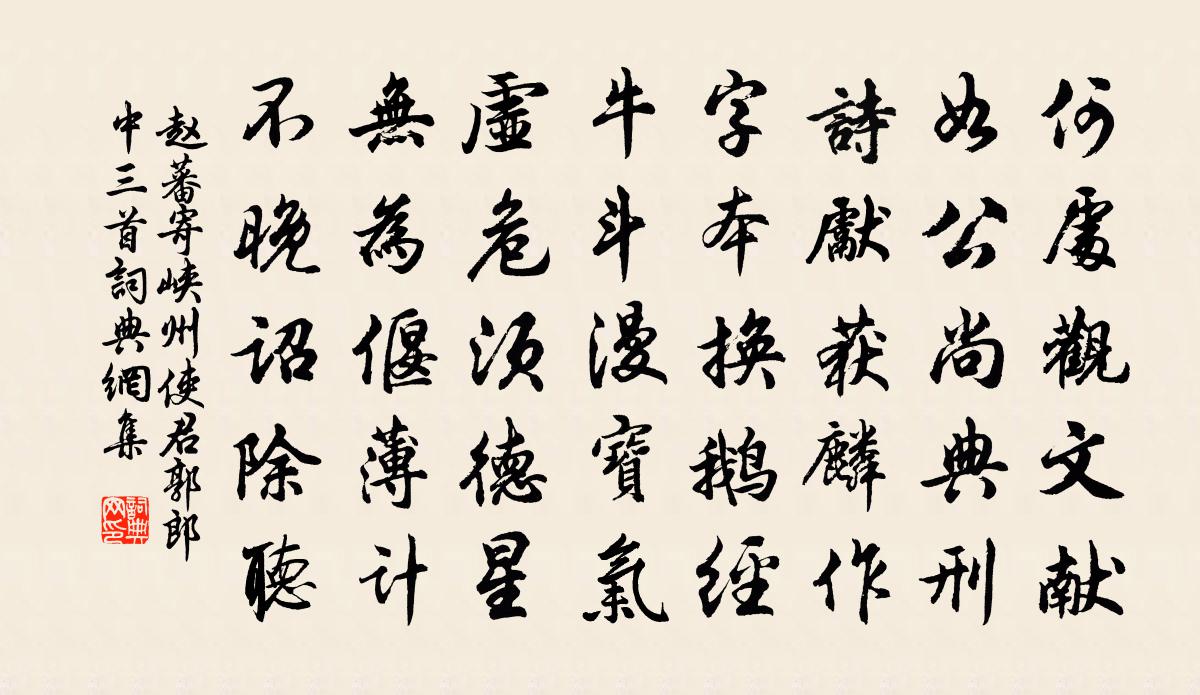 何處觀文献
如公尚典刑
詩獻获麟作
字本换鹅經
牛斗漫寶氣
虛危须德星
無為偃薄计
不晚诏除聽
赵蕃寄峡州使君郭郎
中三首詞典網集
詞典
网印